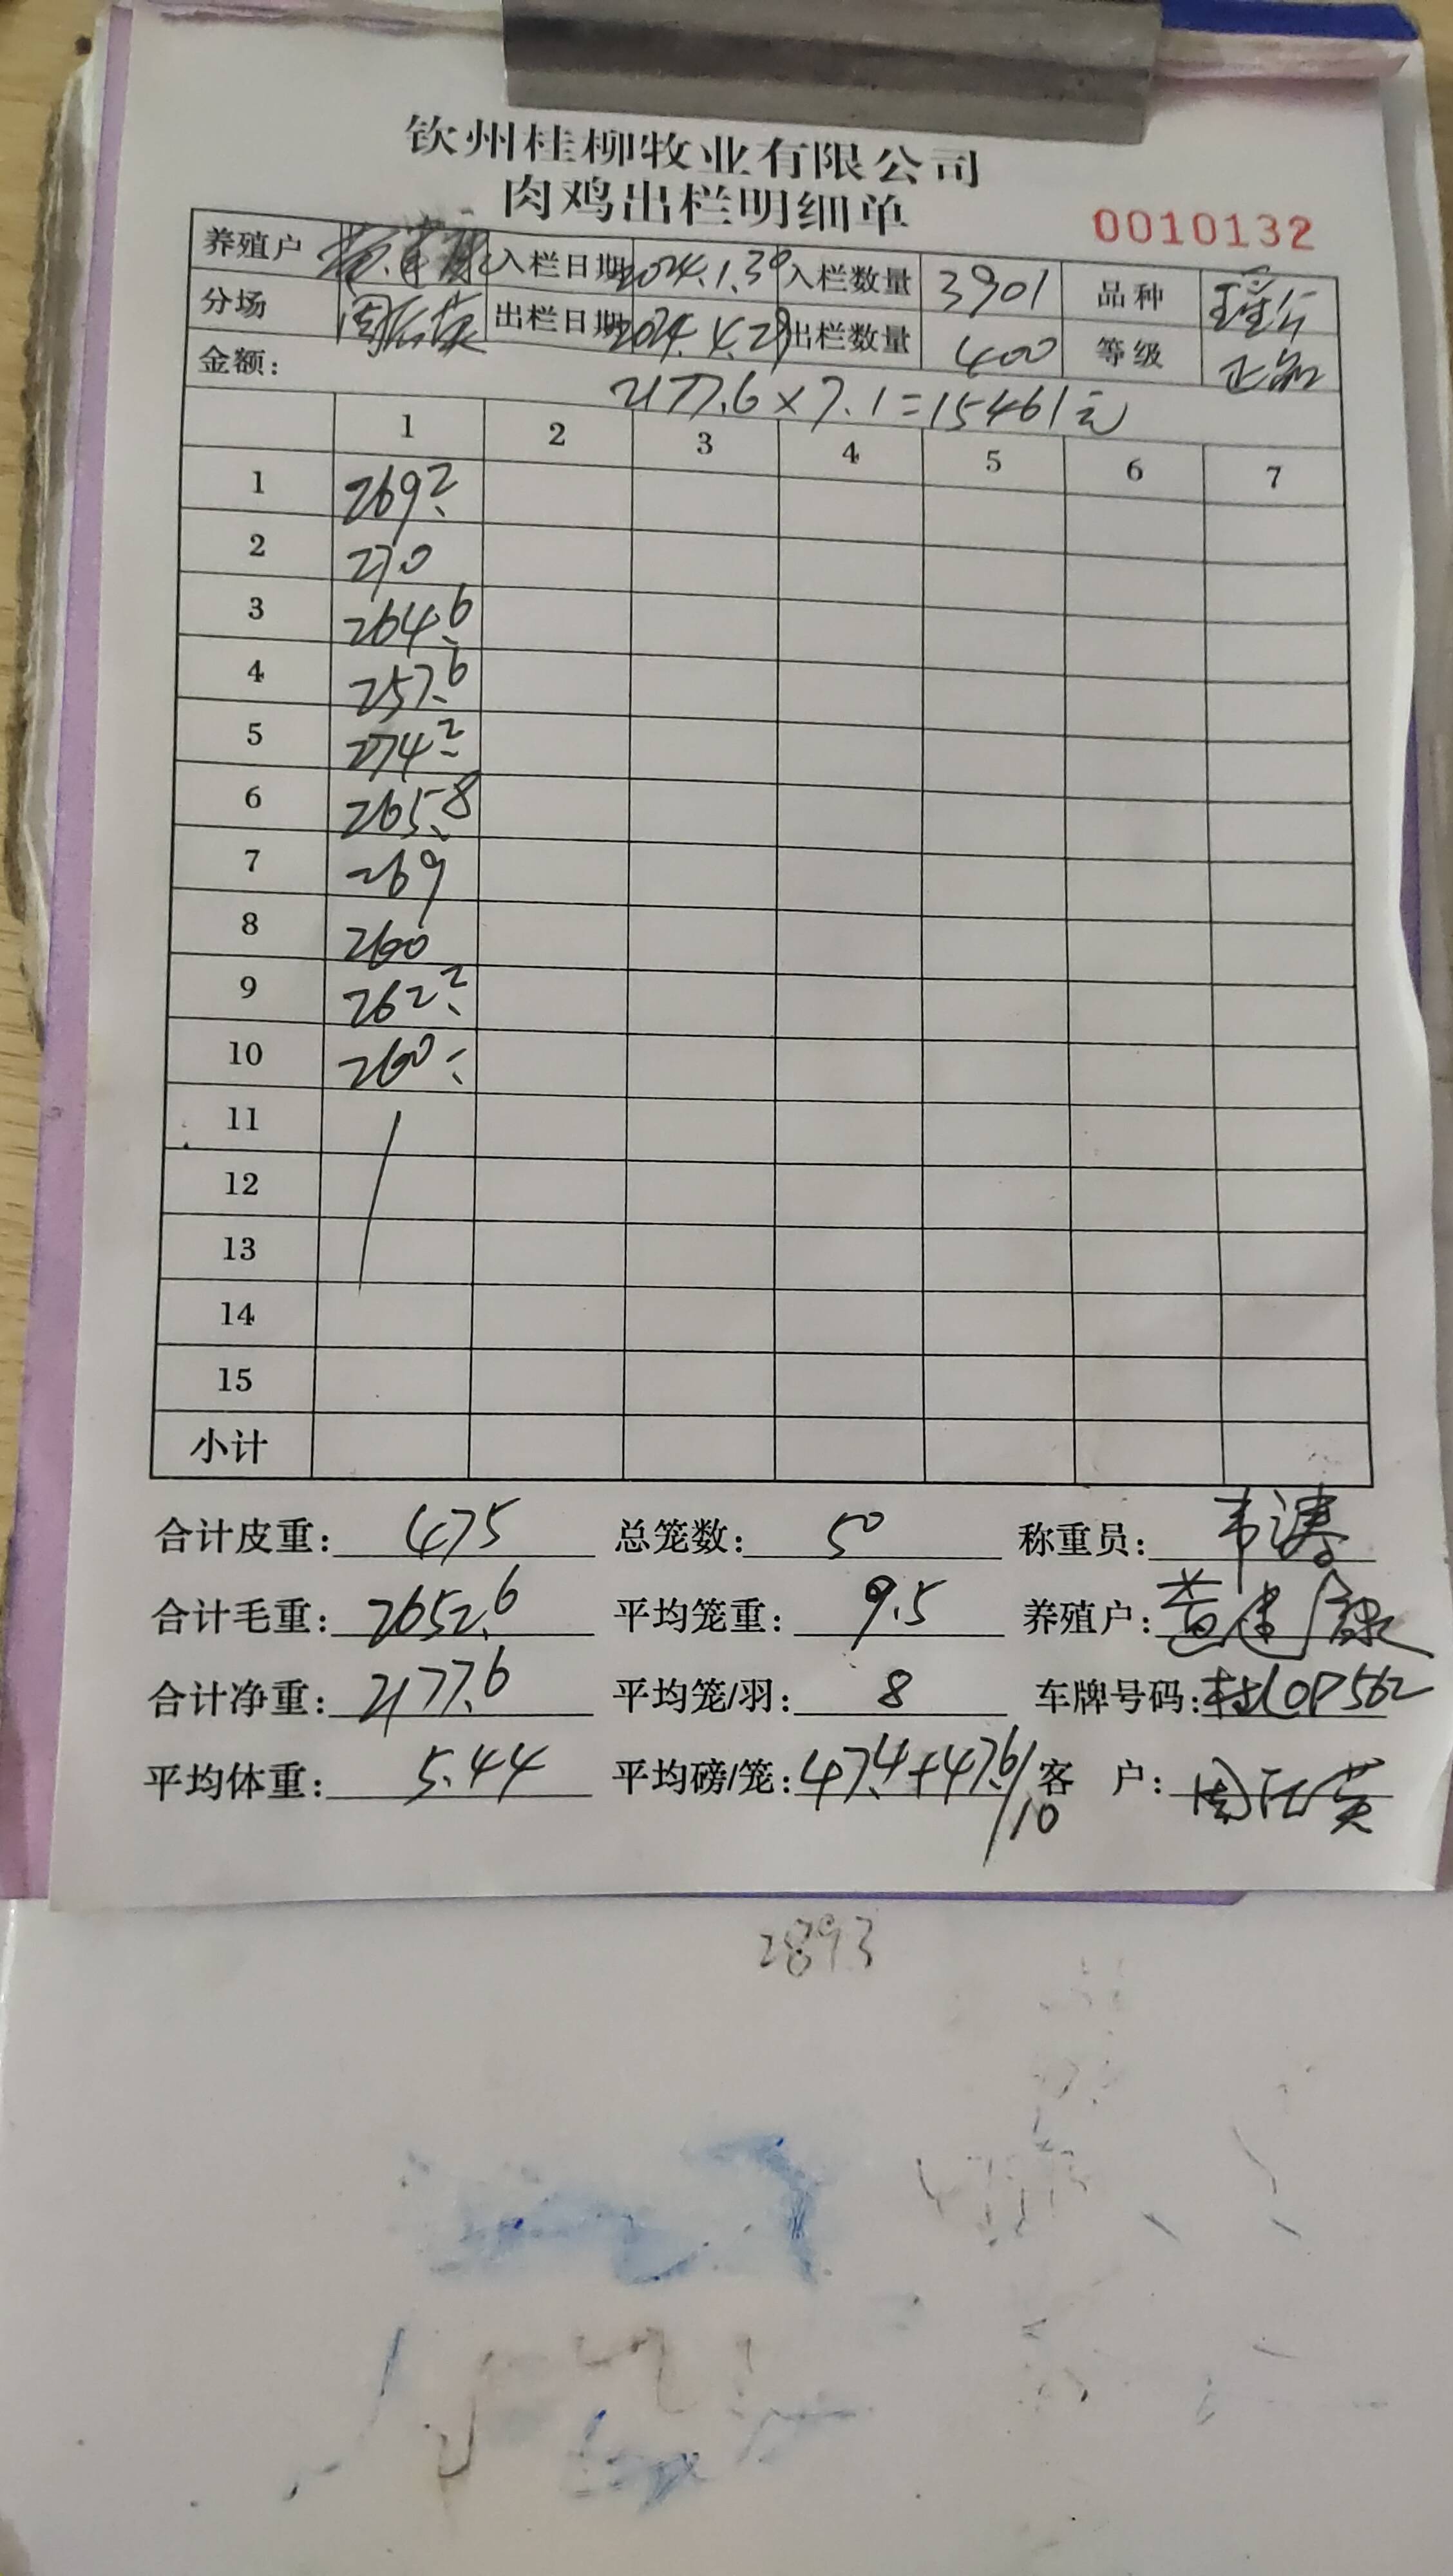 钦州桂柳牧业有限公司
肉鸡出栏明细单
0010132
养殖户 入栏日期 2024.1.30 入栏数量 3901 品种
分场 出栏日期 2024.4.29 出栏数量 400 等级 正品
金额: 2177.6×7.1=15461元
1 2 3 4 5 6 7
1 269.2
2 270
3 264.6
4 257.6
5 274.2
6 265.8
7 269
8 260
9 262.2
10 260.
11
12
13
14
15
小计
合计皮重: 475 总笼数: 50 称重员: 韦涛
合计毛重: 2652.6 平均笼重: 9.5 养殖户: 黄建康
合计净重: 2177.6 平均笼/羽: 8 车牌号码: 桂L0P562
平均体重: 5.44 平均磅/笼: 47.4+47.6/10 客 户:
2893